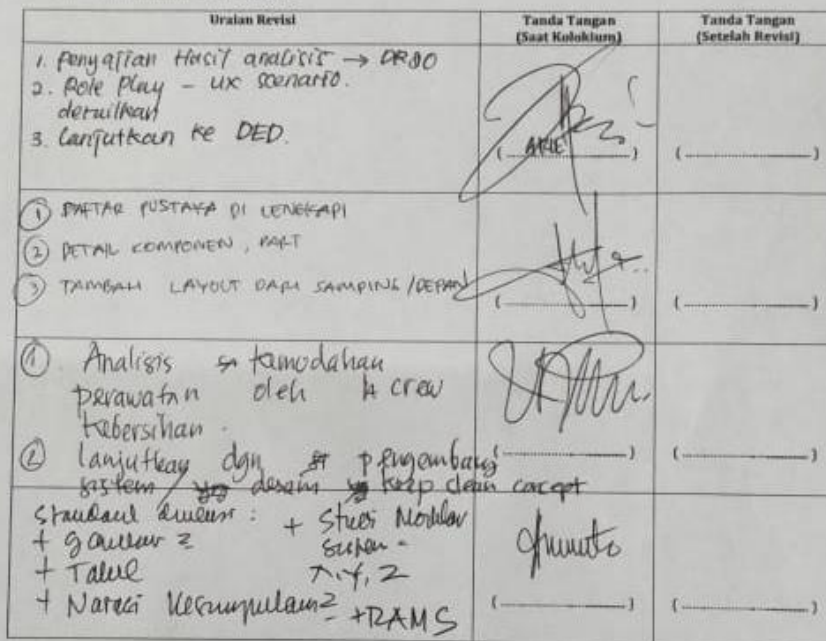 Uraian Revisi
Tanda Tangan
(Saat Kolokium)
Tanda Tangan
(Setelah Revisi)
1. Penyajian Hasil analisis →
2. Role Play - UX scenario.
detailkan
3. Lanjutkan ke DED.
(ARIE)
(
)
① DAFTAR PUSTAKA DI LENGKAPI
② DETAIL KOMPONEN, PART
③ TAMBAH LAYOUT DARI SAMPING/DEPAN
(
)
(
)
① Analisis kemudahan
perawatan oleh crew
kebersihan.
② lanjutkan dgn pengembang
sistem desain keep clean concept
(
)
(
)
Standard : + Studi Modular
+ gambar 2 sistem -
+ Tabel X, Y, Z
+ Narasi Kesimpulan2 + RAMS
(
)
(
)